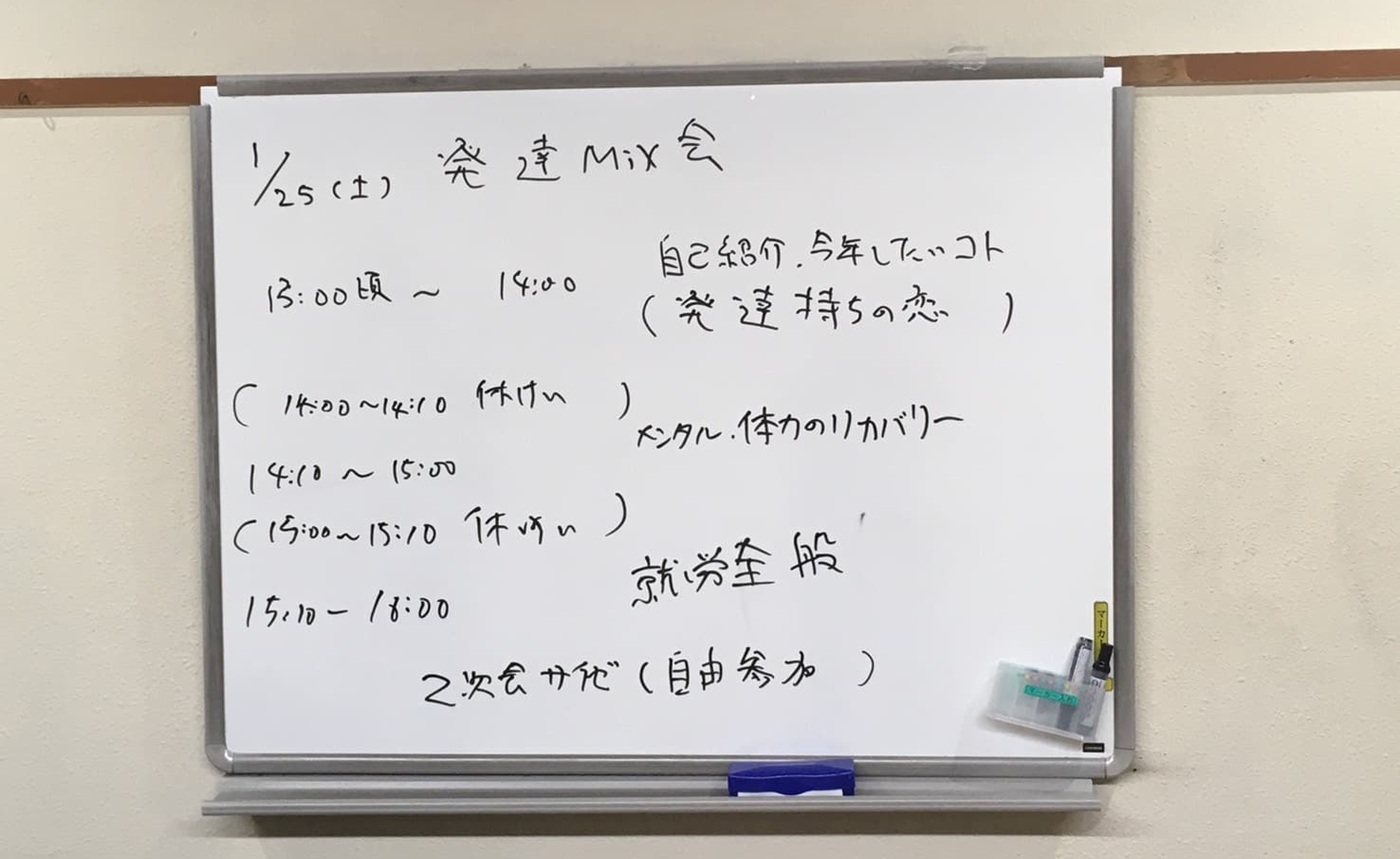 1/25(土) 発達Mix会
13:00頃～14:00 自己紹介.今年したいコト
(発達持ちの恋)
(14:00～14:10 休けい)
メンタル.体力のリカバリー
14:10～15:00
(15:00～15:10 休けい)
就労全般
15:10－16:00
2次会サイゼ(自由参加)
マーカー入れ